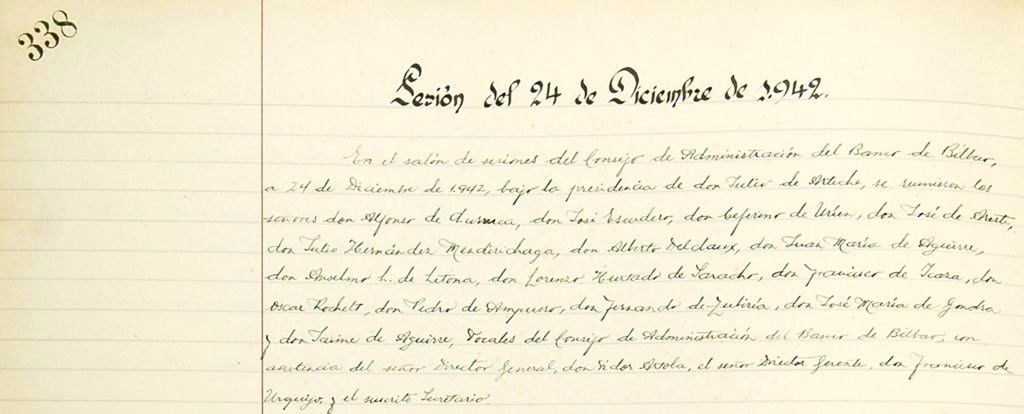 338
Sesión del 24 de Diciembre de 1.942.
En el salón de sesiones del Consejo de Administración del Banco de Bilbao,
a 24 de Diciembre de 1.942, bajo la presidencia de don Julio de Arteche, se reunieron los
señores don Alfonso de Churruca, don José Escudero, don Ceferino de Urien, don José de Aresti,
don Julio Hernández Mendirichaga, don Alberto Delclaux, don Juan María de Aguirre,
don Anselmo L. de Letona, don Lorenzo Hurtado de Saracho, don Francisco de Icaza, don
Oscar Rochelt, don Pedro de Ampuero, don Fernando de Zubiría, don José María de Gondra
y don Jaime de Aguirre, Vocales del Consejo de Administración del Banco de Bilbao, con
asistencia del señor Director General, don Victor Artola, el señor Director Gerente, don Francisco de
Urquijo, y el suscrito Secretario.